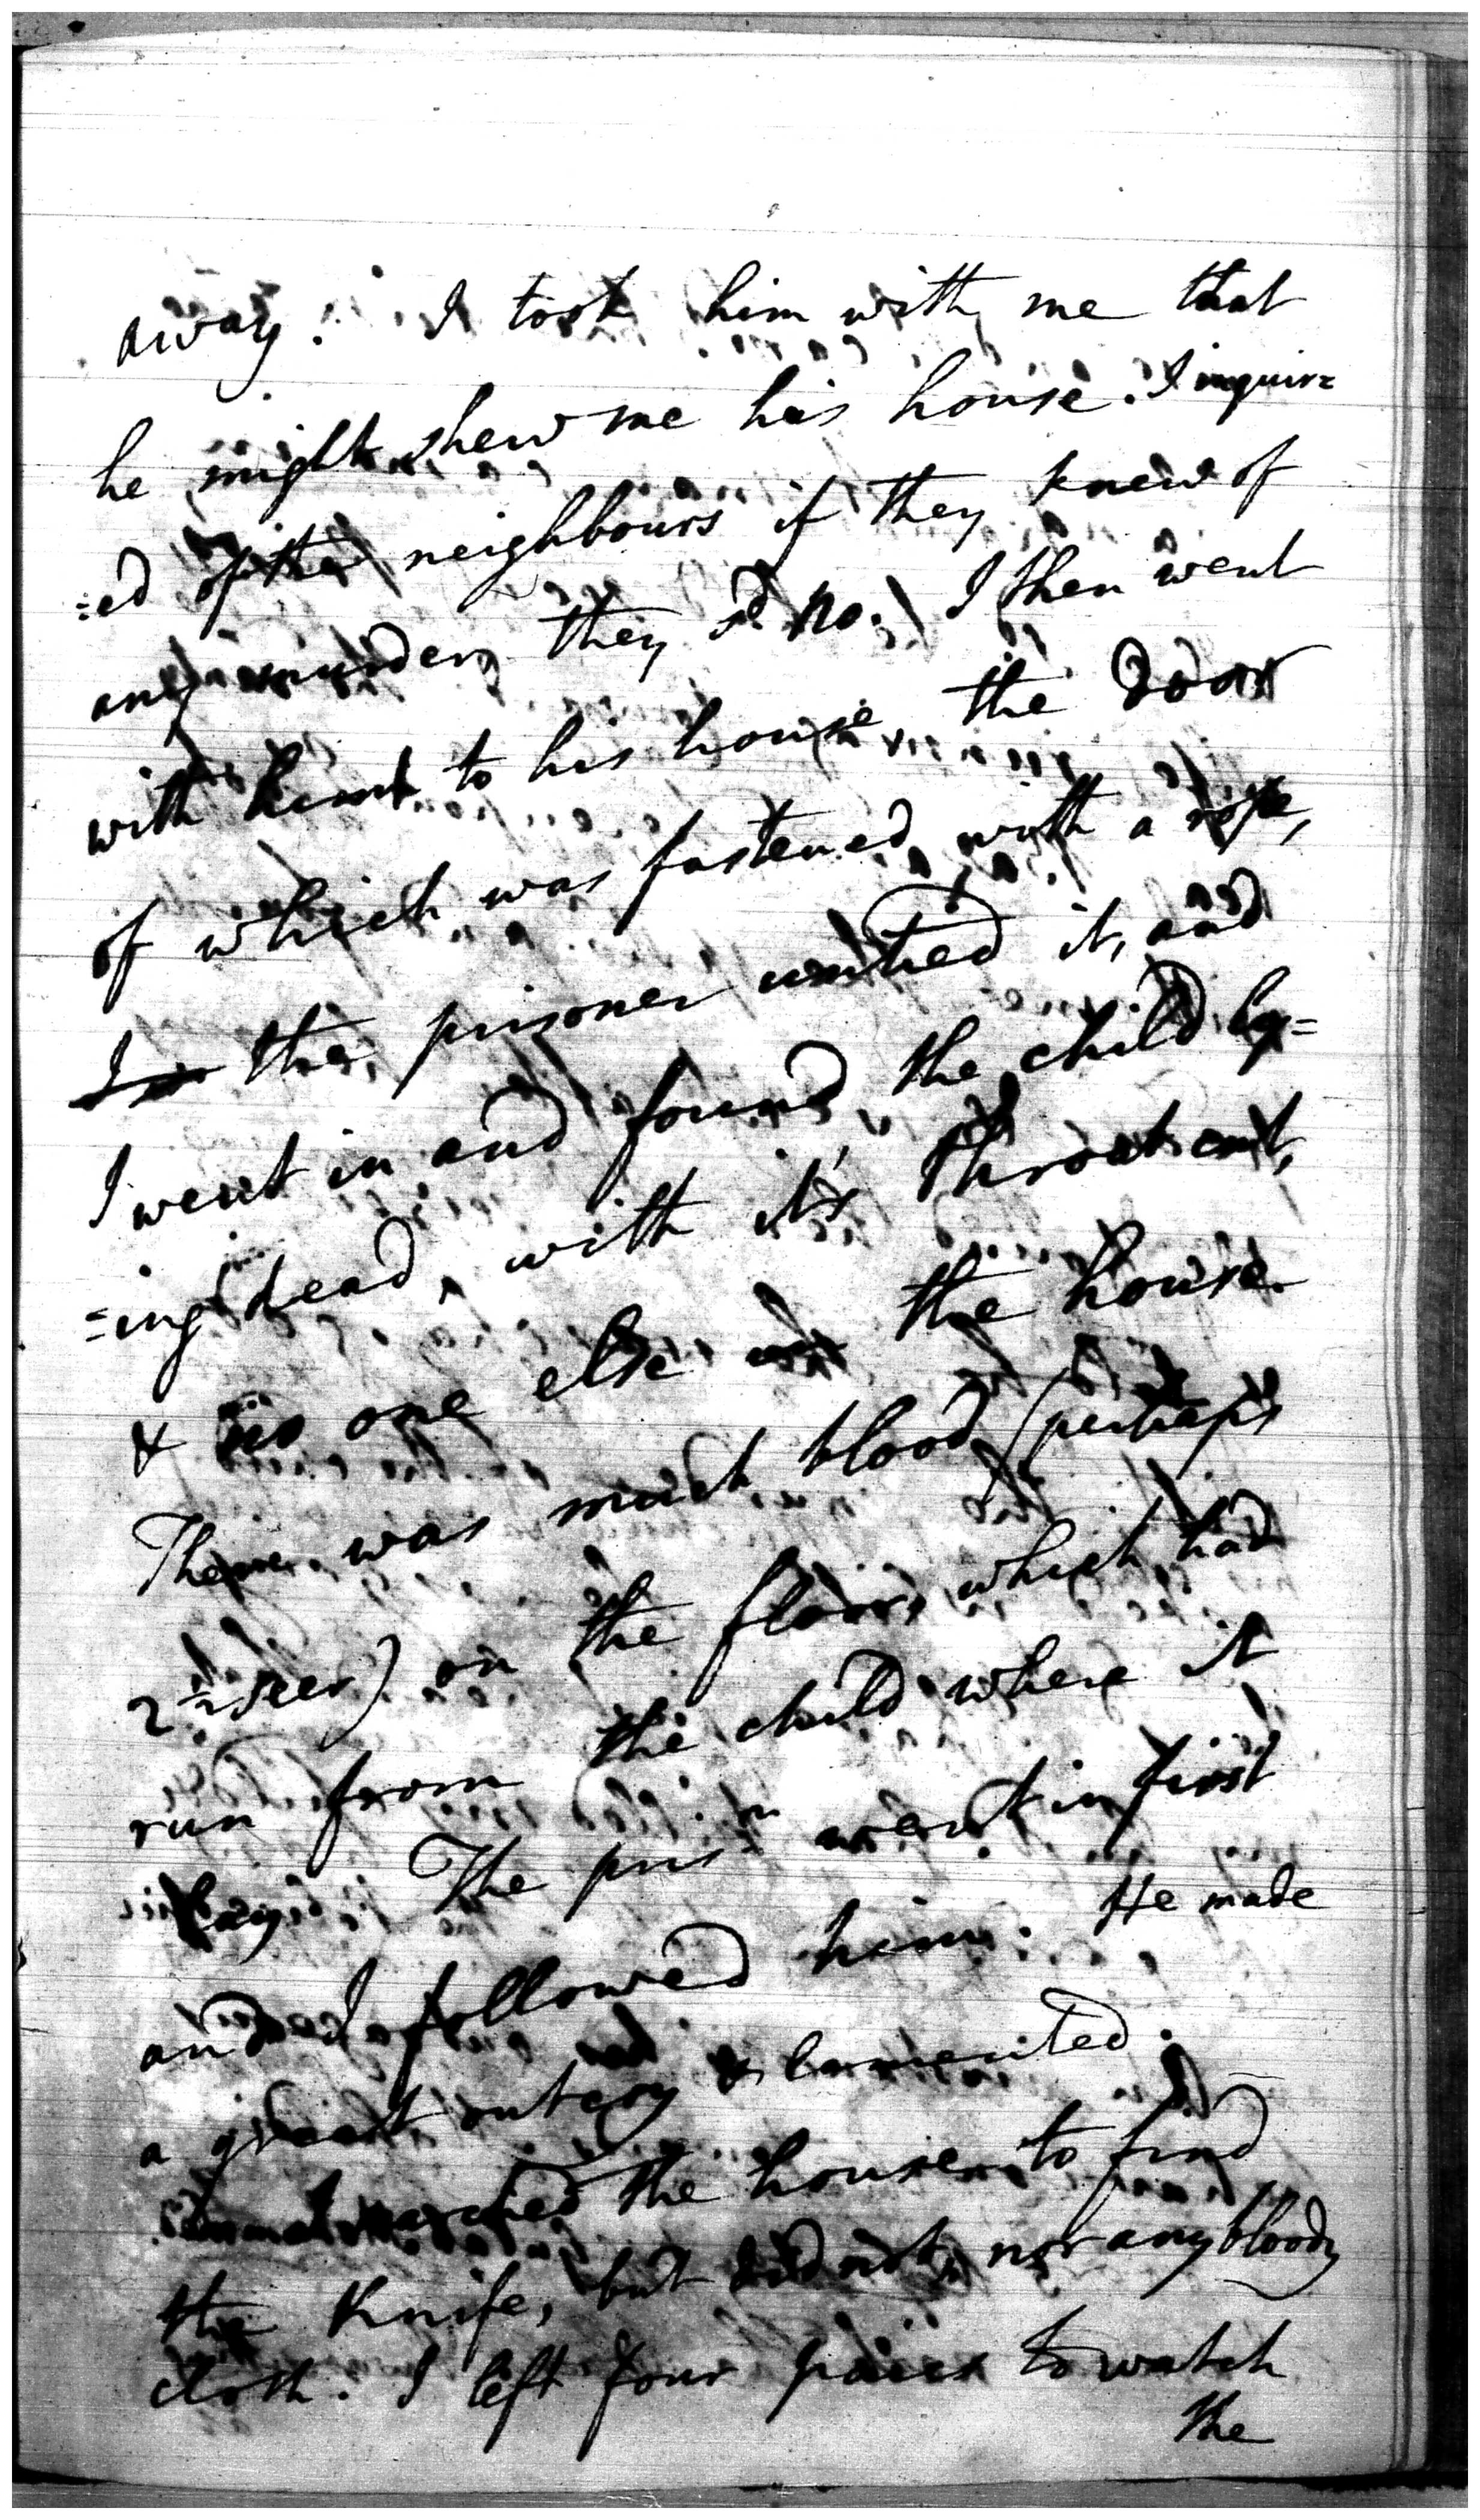 away. I took him with me that
he might shew me his house. I inquir=
=ed of the neighbours if they knew of
any murder, they sd no. I then went
with him to his house, the door
of which was fastened with a rope,
the prisoner untied it, and
I went in and found the child ly=
=ing dead, with its throat cut,
& no one else in the house.
There was much blood (perhaps
2½ seer) on the floor, which had
run from the child where it
lay. The prisr went in first
and I followed him. He made
a great outcry & lamented.
I searched the house to find
the knife, but did not, nor any bloody
cloth. I left four paiks to watch
the